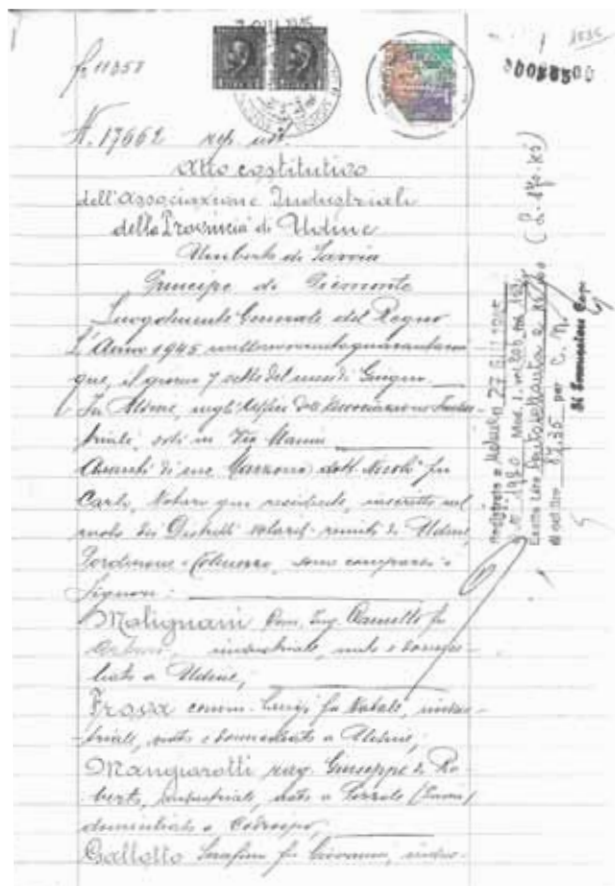 fo 11358
N. 17662 rep. not.
Atto costitutivo
dell'Associazione Industriali
della Provincia di Udine
Umberto di Savoia
Principe di Piemonte
Luogotenente Generale del Regno
L'Anno 1945 millenovecentoquarantacin
que, il giorno 7 sette del mese di Giugno
In Udine, negli Uffici dell'Associazione Indu-
striali, siti in Via Manin
Avanti di me dott. Nicolò fu
Carlo, Notaro qui residente, inscritto nel
ruolo dei Distretti notarili riuniti di Udine,
Pordenone e Tolmezzo, sono comparsi i
Signori:
Malignani Com. Ing. Camillo fu
Arturo, industriale, nato e domici-
liato a Udine,
Frova comm. Luigi fu Natale, indu-
striale, nato e domiciliato a Udine,
Mangiarotti rag. Giuseppe di Ro-
berto, industriale, nato a
domiciliato a Codroipo,
Gallotto Serafino fu Giovanni, indu-
Registrato a Udine li 27 GIU 1945
N. 1980 Mod. I. vol.
Esatte Lire